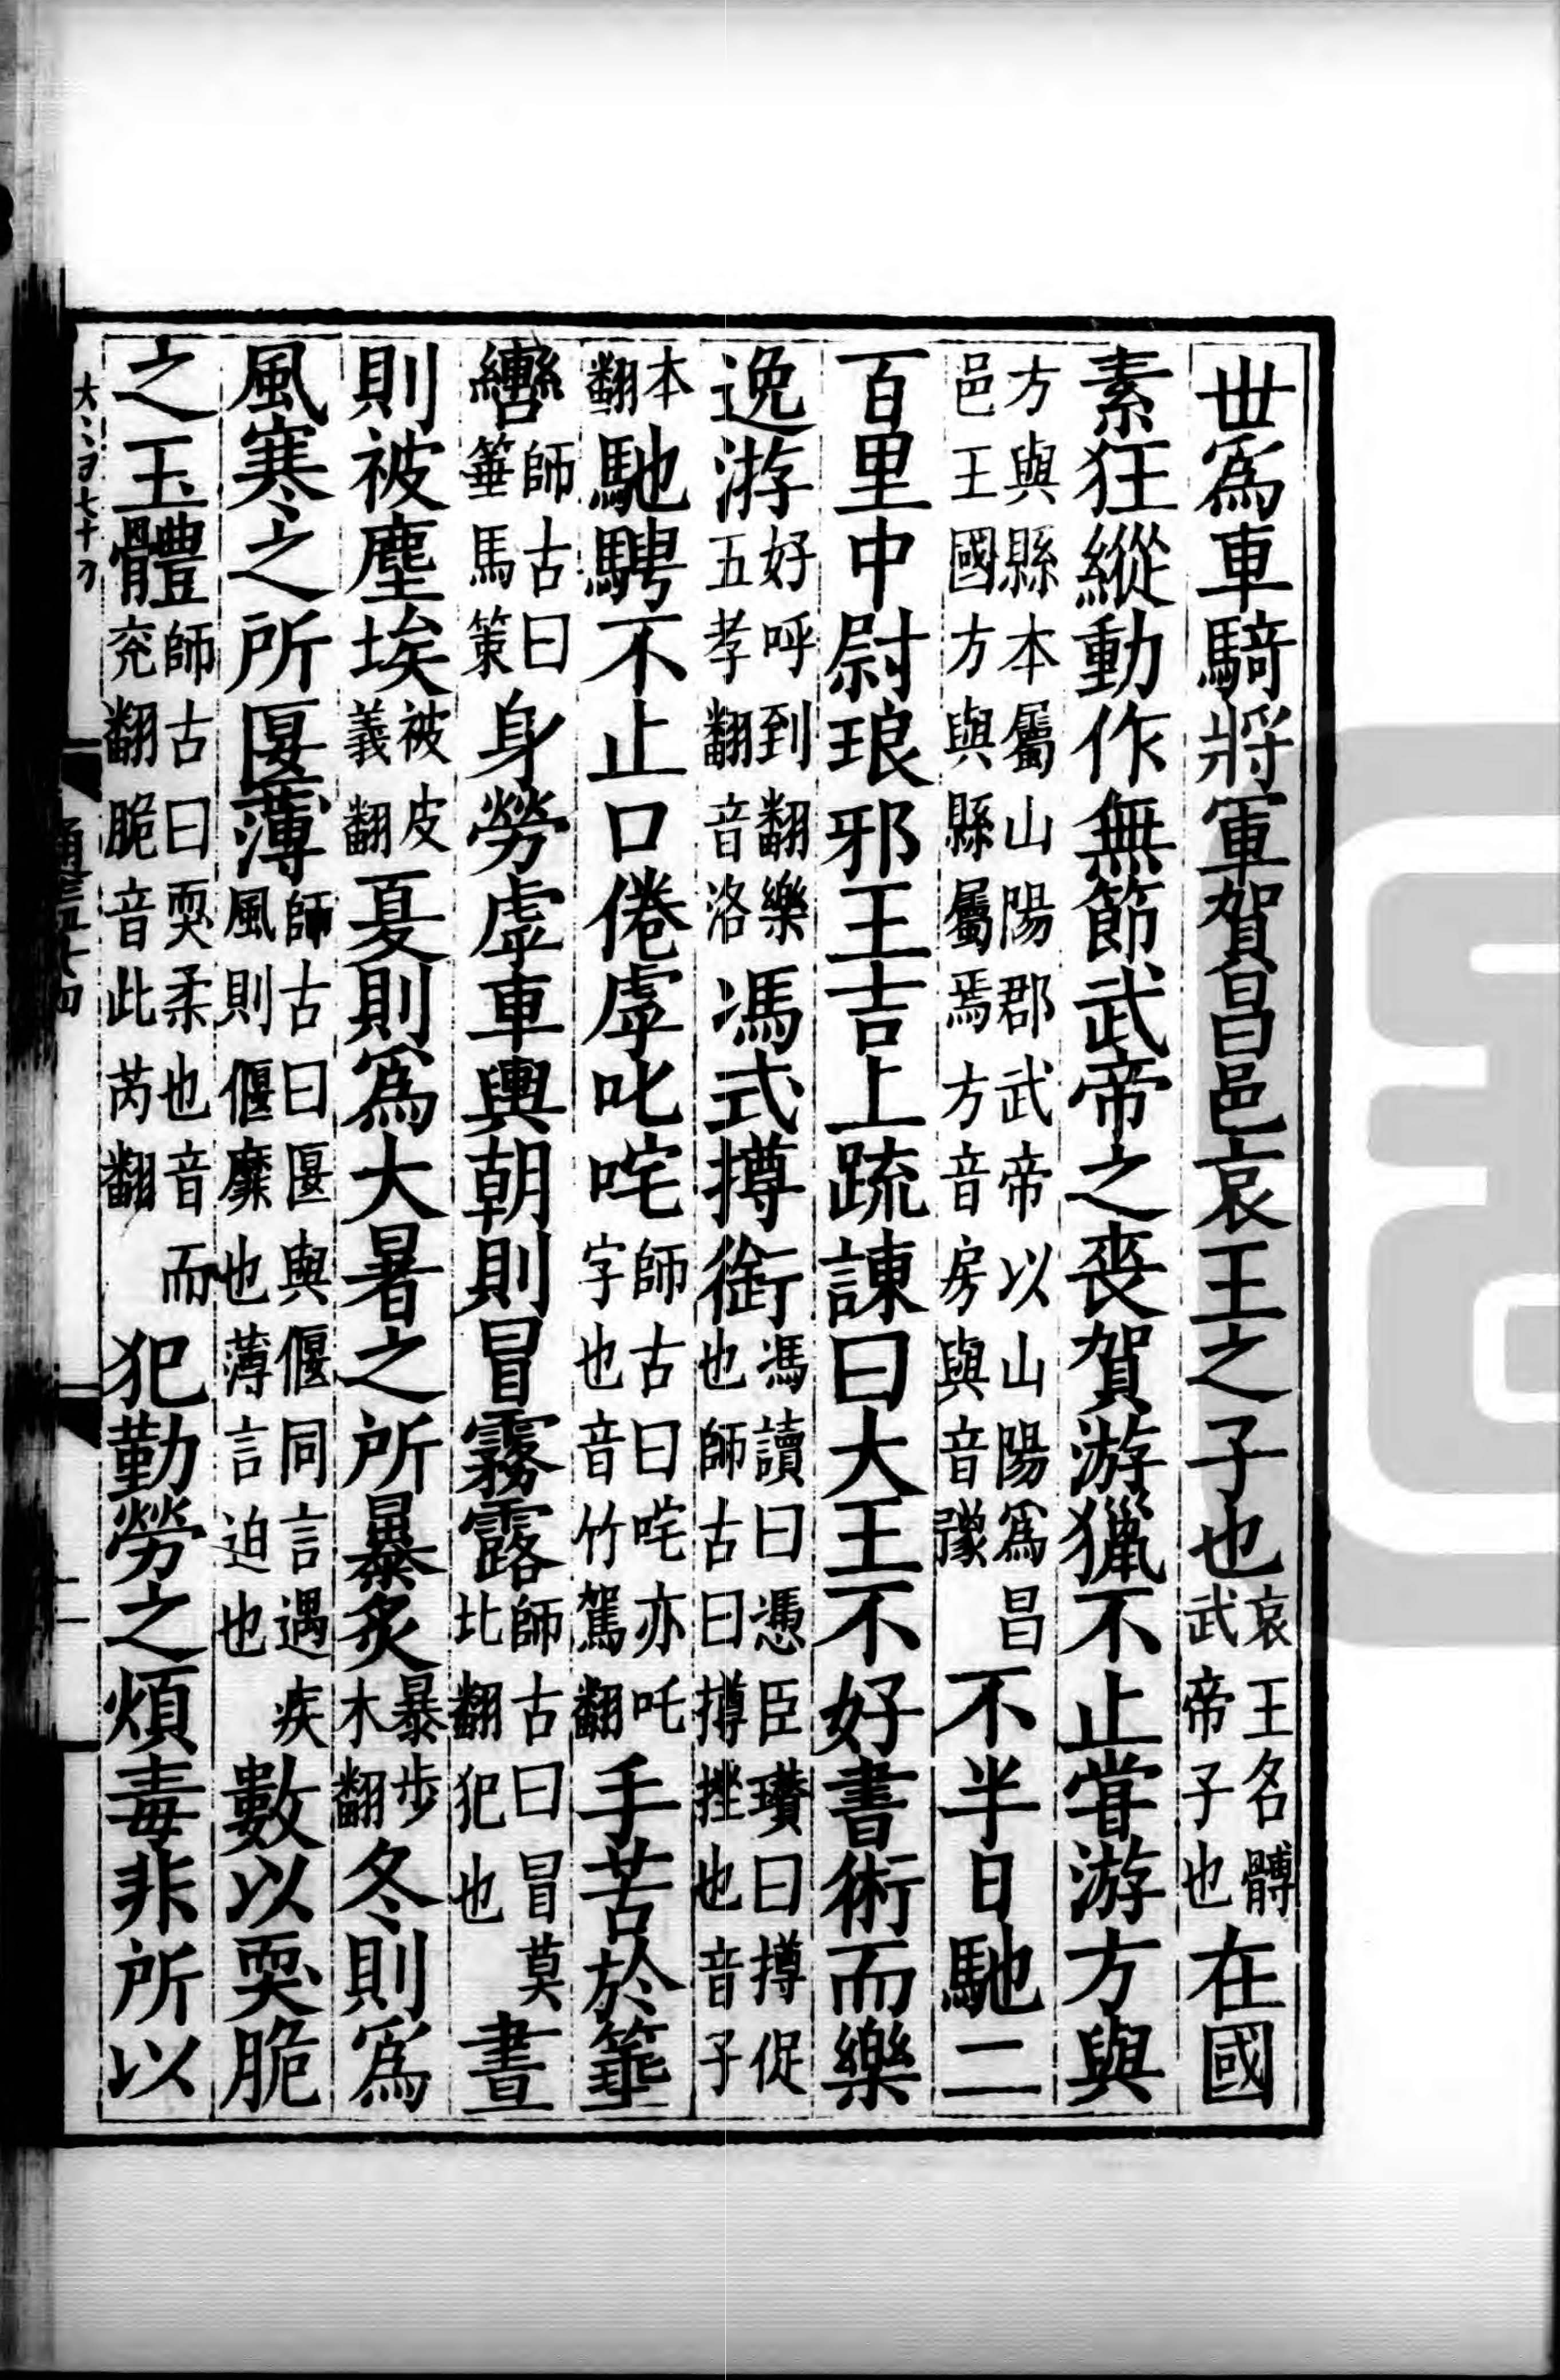 世爲車騎將軍賀昌邑哀王之子也哀王名髆武帝子也在國
素狂縱動作無節武帝之喪賀游獵不止甞游方與
方與縣本屬山陽郡武帝以山陽爲昌邑王國方與縣屬焉方音房與音豫不半日馳二
百里中尉琅邪王吉上疏諫曰大王不好書術而樂
逸游好呼到翻樂五孝翻音洛馮式撙銜馮讀曰憑臣瓚曰撙促也師古曰撙挫也音子
本翻馳騁不止口倦虖叱咤師古曰咤亦吒字也音竹駕翻手苦於箠
轡師古曰箠馬策身勞虖車輿朝則冒霧露師古曰冒莫北翻犯也晝
則被塵埃被皮義翻夏則爲大暑之所暴炙暴步木翻冬則爲
風寒之所匽薄師古曰匽與偃同言遇疾風則偃靡也薄言迫也數以耎脆
之玉體師古曰耎柔也音而兖翻脆音此芮翻犯勤勞之煩毒非所以